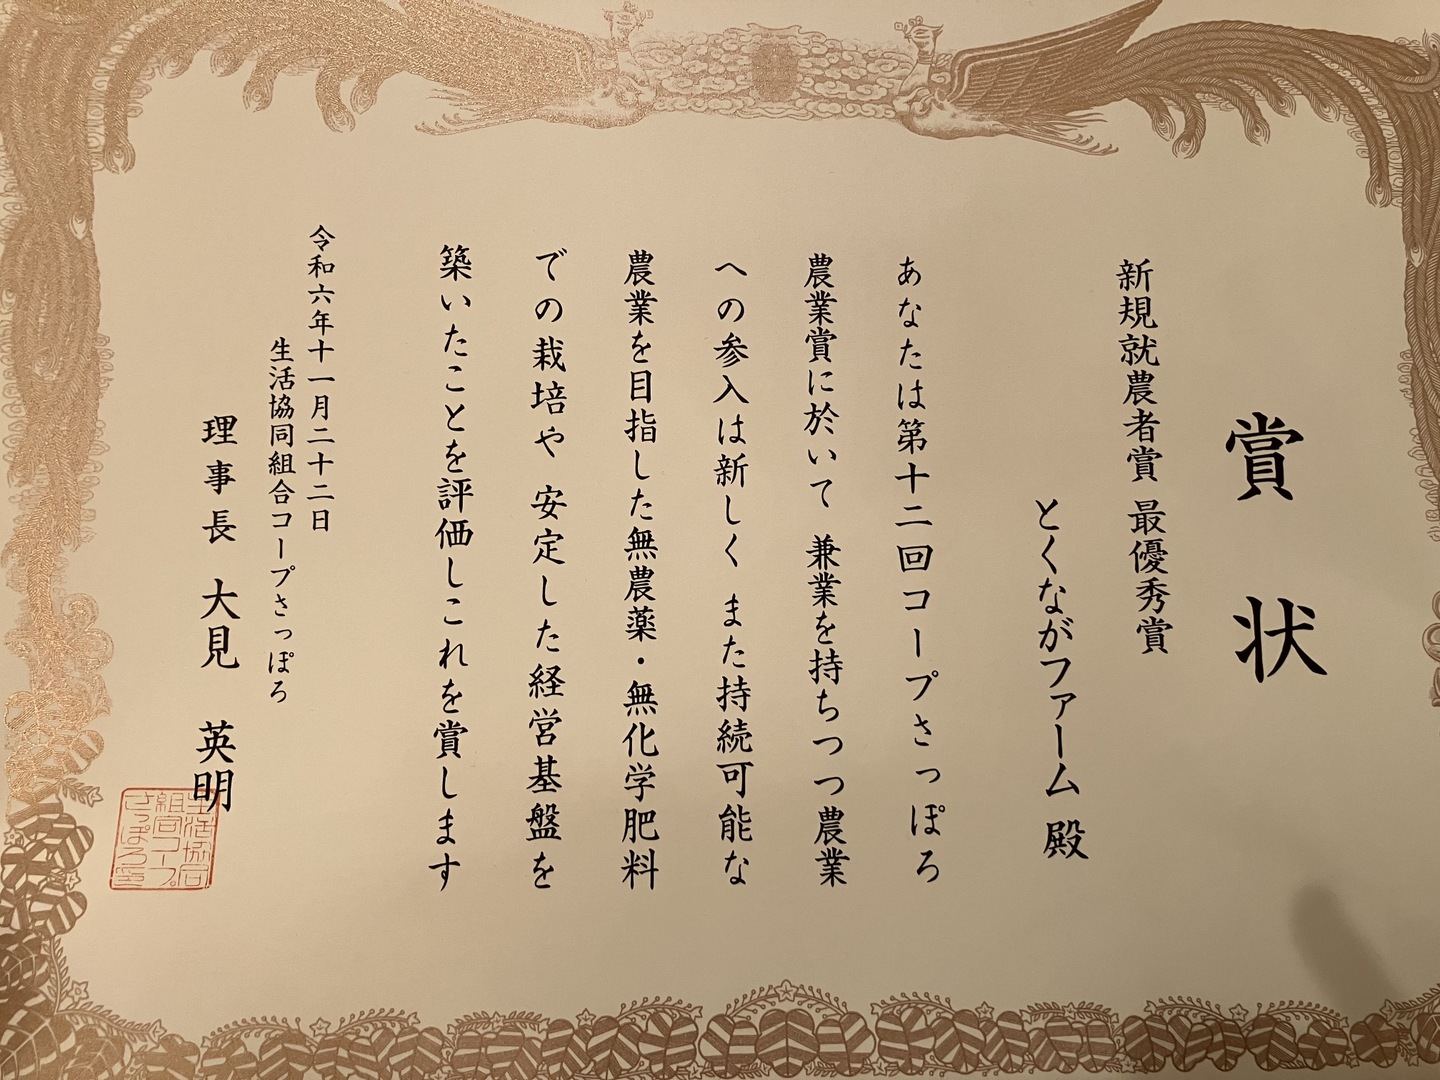 賞状
新規就農者賞 最優秀賞
とくながファーム 殿
あなたは第十二回コープさっぽろ
農業賞に於いて 兼業を持ちつつ農業
への参入は新しく また持続可能な
農業を目指した無農薬・無化学肥料
での栽培や 安定した経営基盤を
築いたことを評価しこれを賞します
令和六年十一月二十二日
生活協同組合コープさっぽろ
理事長 大見 英明
生活協同
組合コープ
さっぽろ印